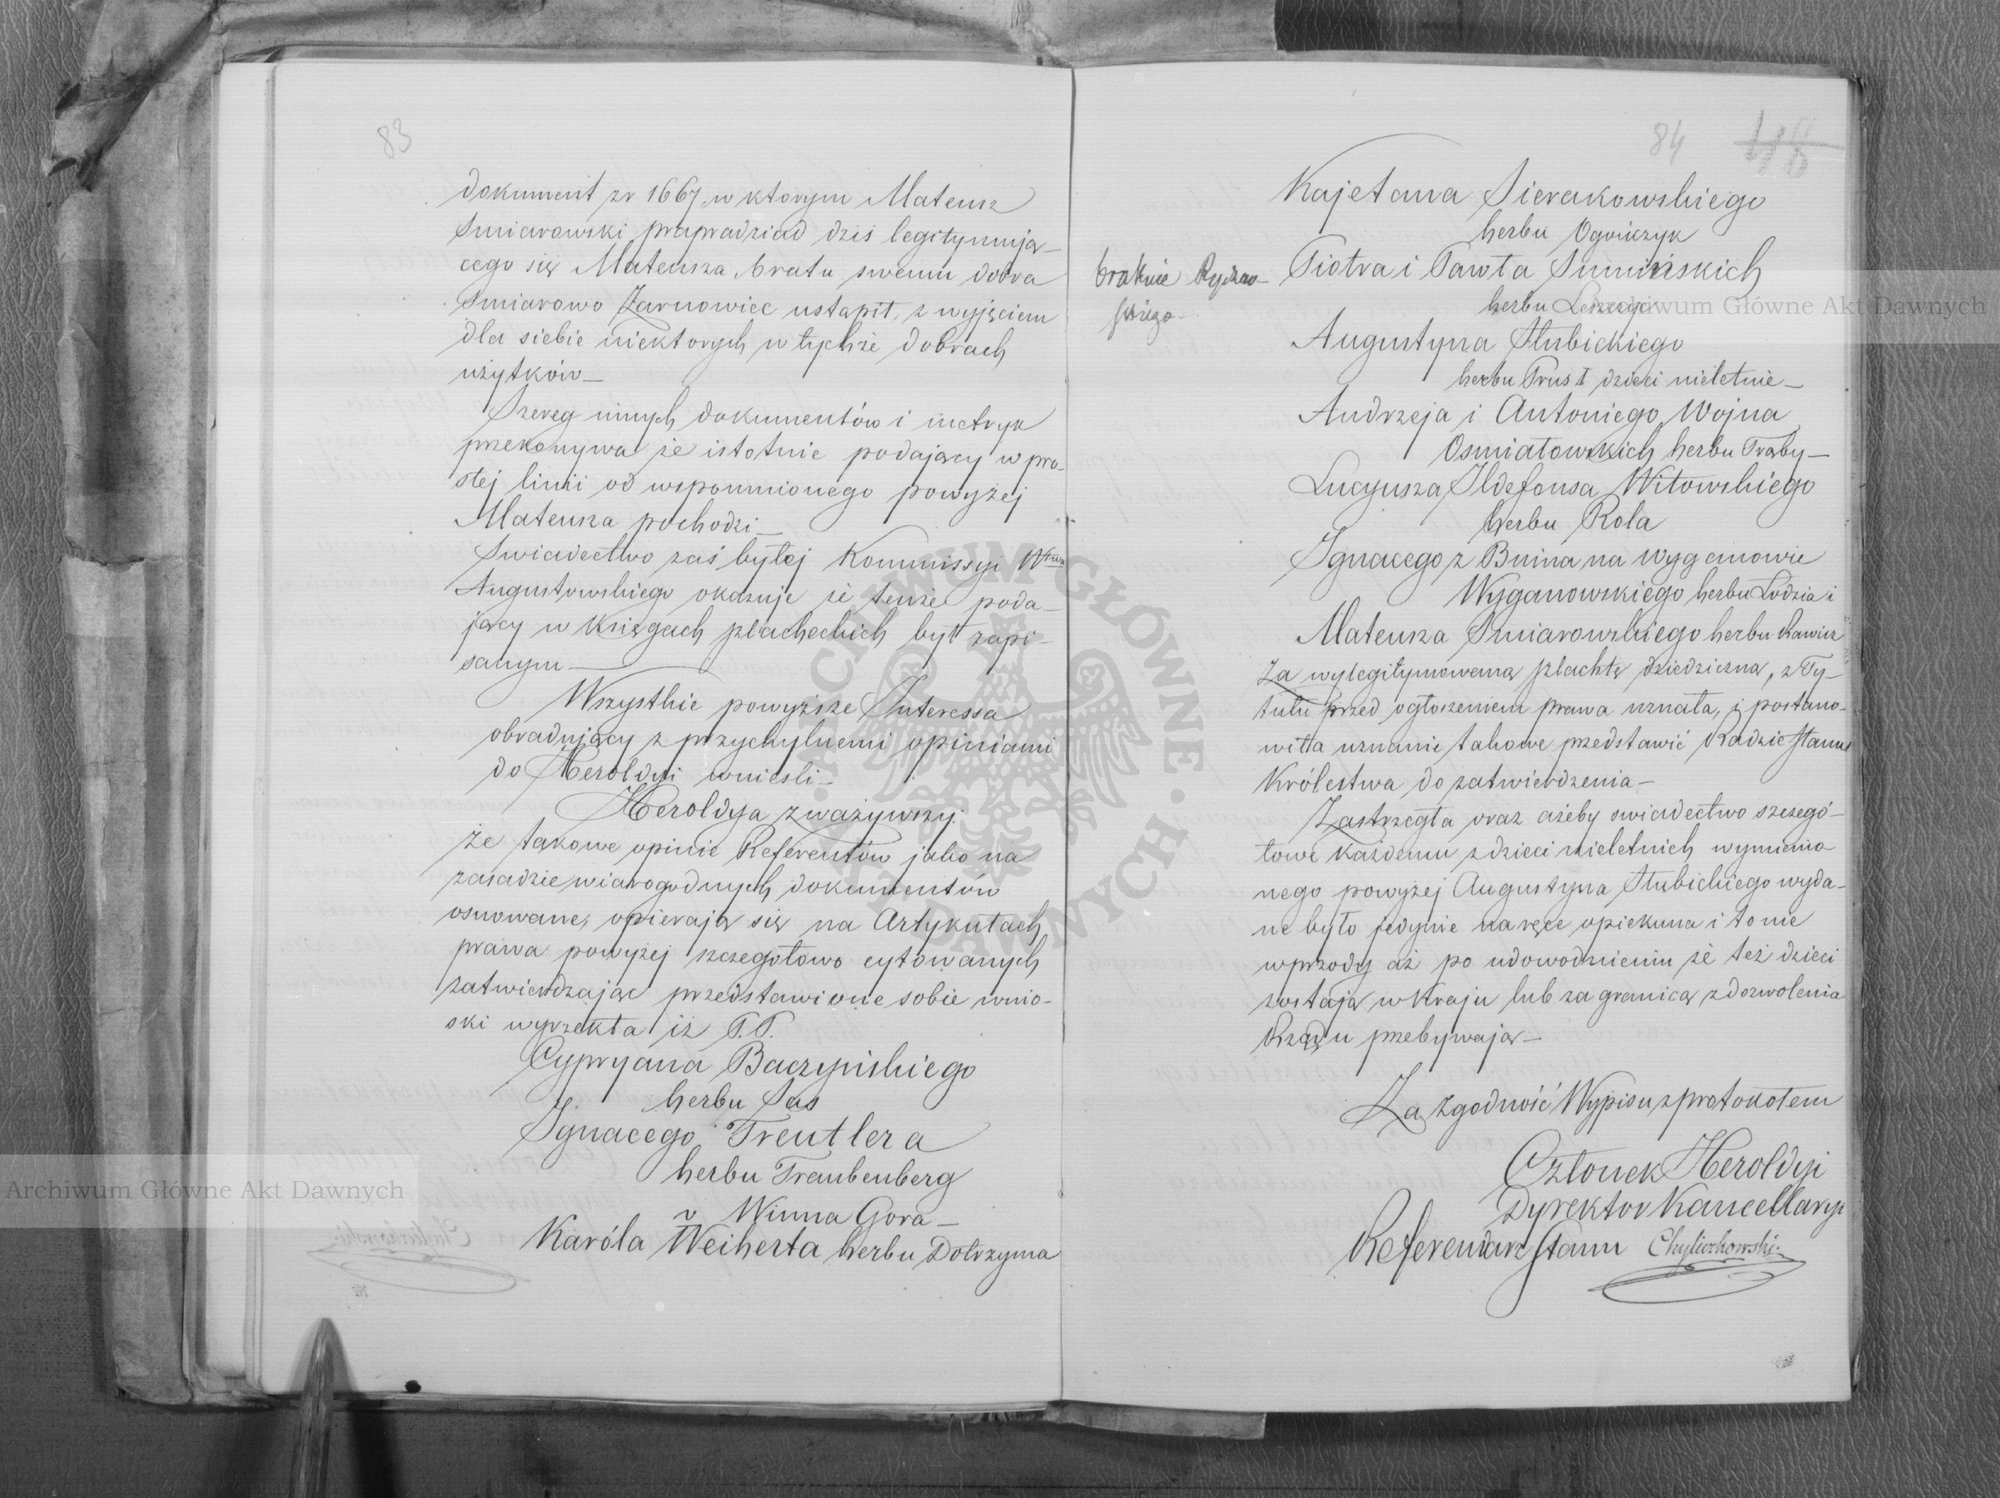 83
dokument z r 1667, w ktorym Mateusz
Smiarowski prapradziad dziś legitymują-
cego się Mateusza, bratu swemu dobra
Smiarowo Żarnowiec ustąpił, z wyjęciem
dla siebie niektorych w tychże dobrach
użytków_
Szereg innych dokumentów i metryk
przekonywa że istotnie podający w pro-
stej linii od wspomnionego powyżej
Mateusza pochodzi_
Swiadectwo zaś byłej Kommissyi Wtwa
Augustowskiego okazuje że tenże poda-
jący w księgach szlacheckich był zapi-
sanym_
Wszystkie powyższe Interessa
obradujący z przychylnemi opiniami
do Heroldyi wniesli_
Heroldya zważywszy
że takowe opinie Referentów jako na
zasadzie wiarogodnych dokumentów
osnowane, opierają się na Artykułach
prawa powyżej szczegołowo cytowanych
zatwierdzając przedstawione sobie wnio-
ski wyrzekła iż P.P.
Cypryana Baczyńskiego
herbu Sas
Ignacego Treutlera
herbu Traubenberg
Winna Gora_
Karóla Weiherta herbu Dołrzyma
84 48
Kajetana Sierakowskiego
herbu Ogończyk
braknie Ryszew-
skiego
Piotra i Pawła Sumińskich
herbu Leszczyc
Augustyna Słubickiego
herbu Prus I dzieci nieletnie_
Andrzeja i Antoniego Wojna
Osmiałowskich herbu Trąby_
Lucyusza Ildefonsa Witowskiego
herbu Rola
Ignacego z Bnina na Wyganowie
Wyganowskiego herbu Łodzia i
Mateusza Smiarowskiego herbu Rawicz
za wylegitymowaną szlachtę dziedziczną, z Ty-
tułu przed ogłoszeniem prawa uznała, i postano-
wiła uznanie takowe przedstawić Radzie Stanu
Królestwa do zatwierdzenia_
Zastrzegła oraz ażeby swiadectwo szczegó-
łowe każdemu z dzieci nieletnich wymienio-
nego powyżej Augustyna Słubickiego wyda-
ne było jedynie na ręce opiekuna i to nie
wprzody aż po udowodnieniu że też dzieci
zostają w Kraju lub za granicą z dozwolenia
Rządu przebywają_
Za zgodność Wypisu z protokołem
Członek Heroldyi
Dyrektor Kancellaryi
Referendarz Stanu Chyliczkowski
Archiwum Główne Akt Dawnych
Archiwum Główne Akt Dawnych
ARCHIWUM GŁÓWNE · AKT DAWNYCH ·